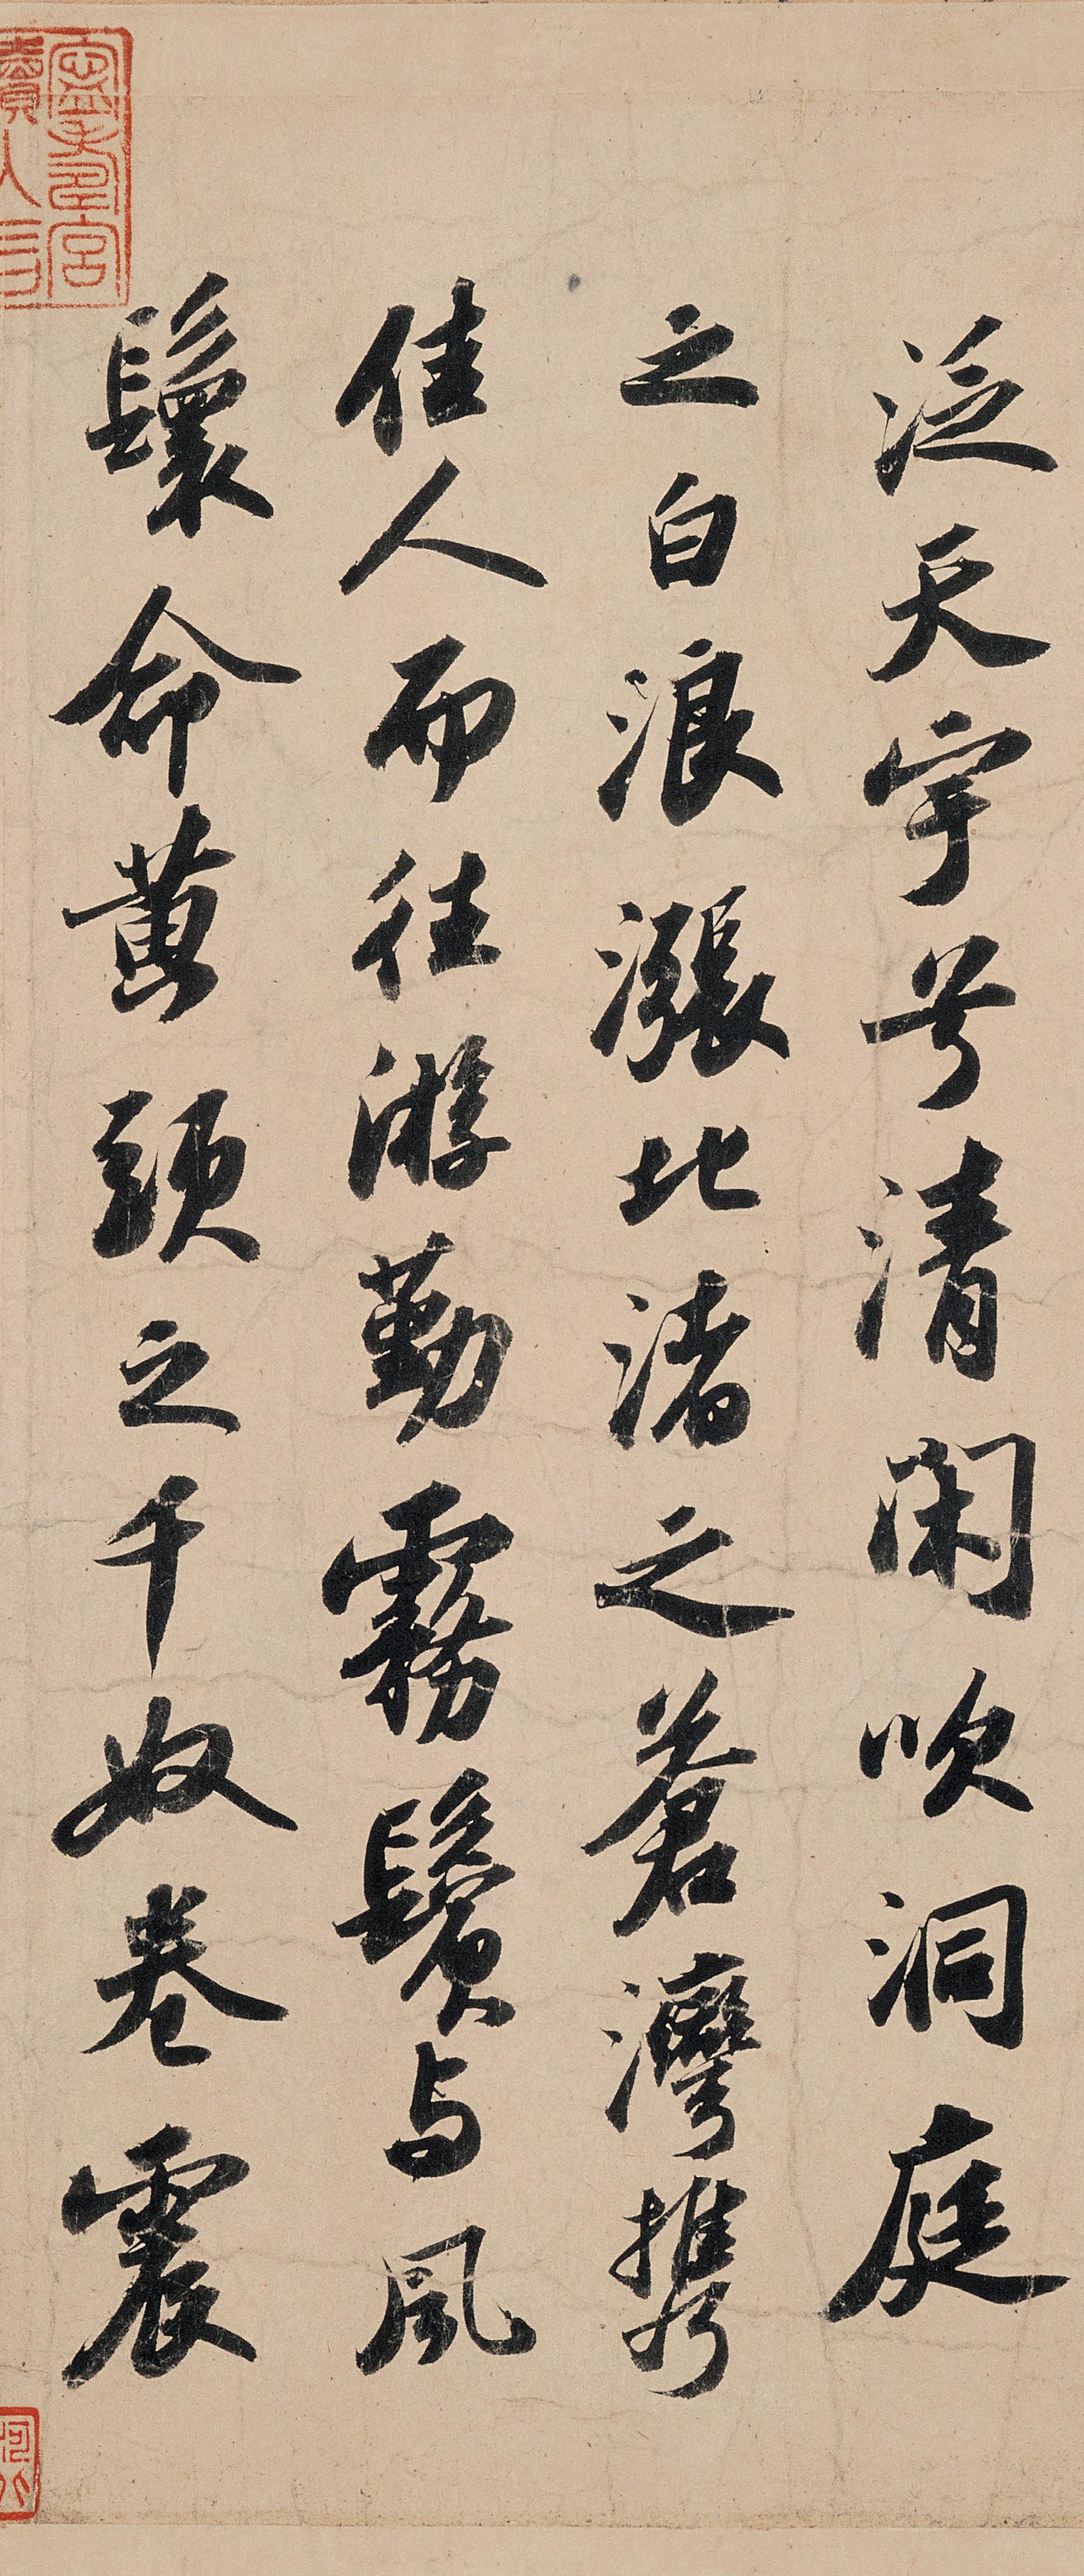 泛天宇兮清閑吹洞庭
之白浪漲北渚之蒼灣携
佳人而往游勤霧鬢与風
鬟命黃頭之千奴卷震
寧壽宮